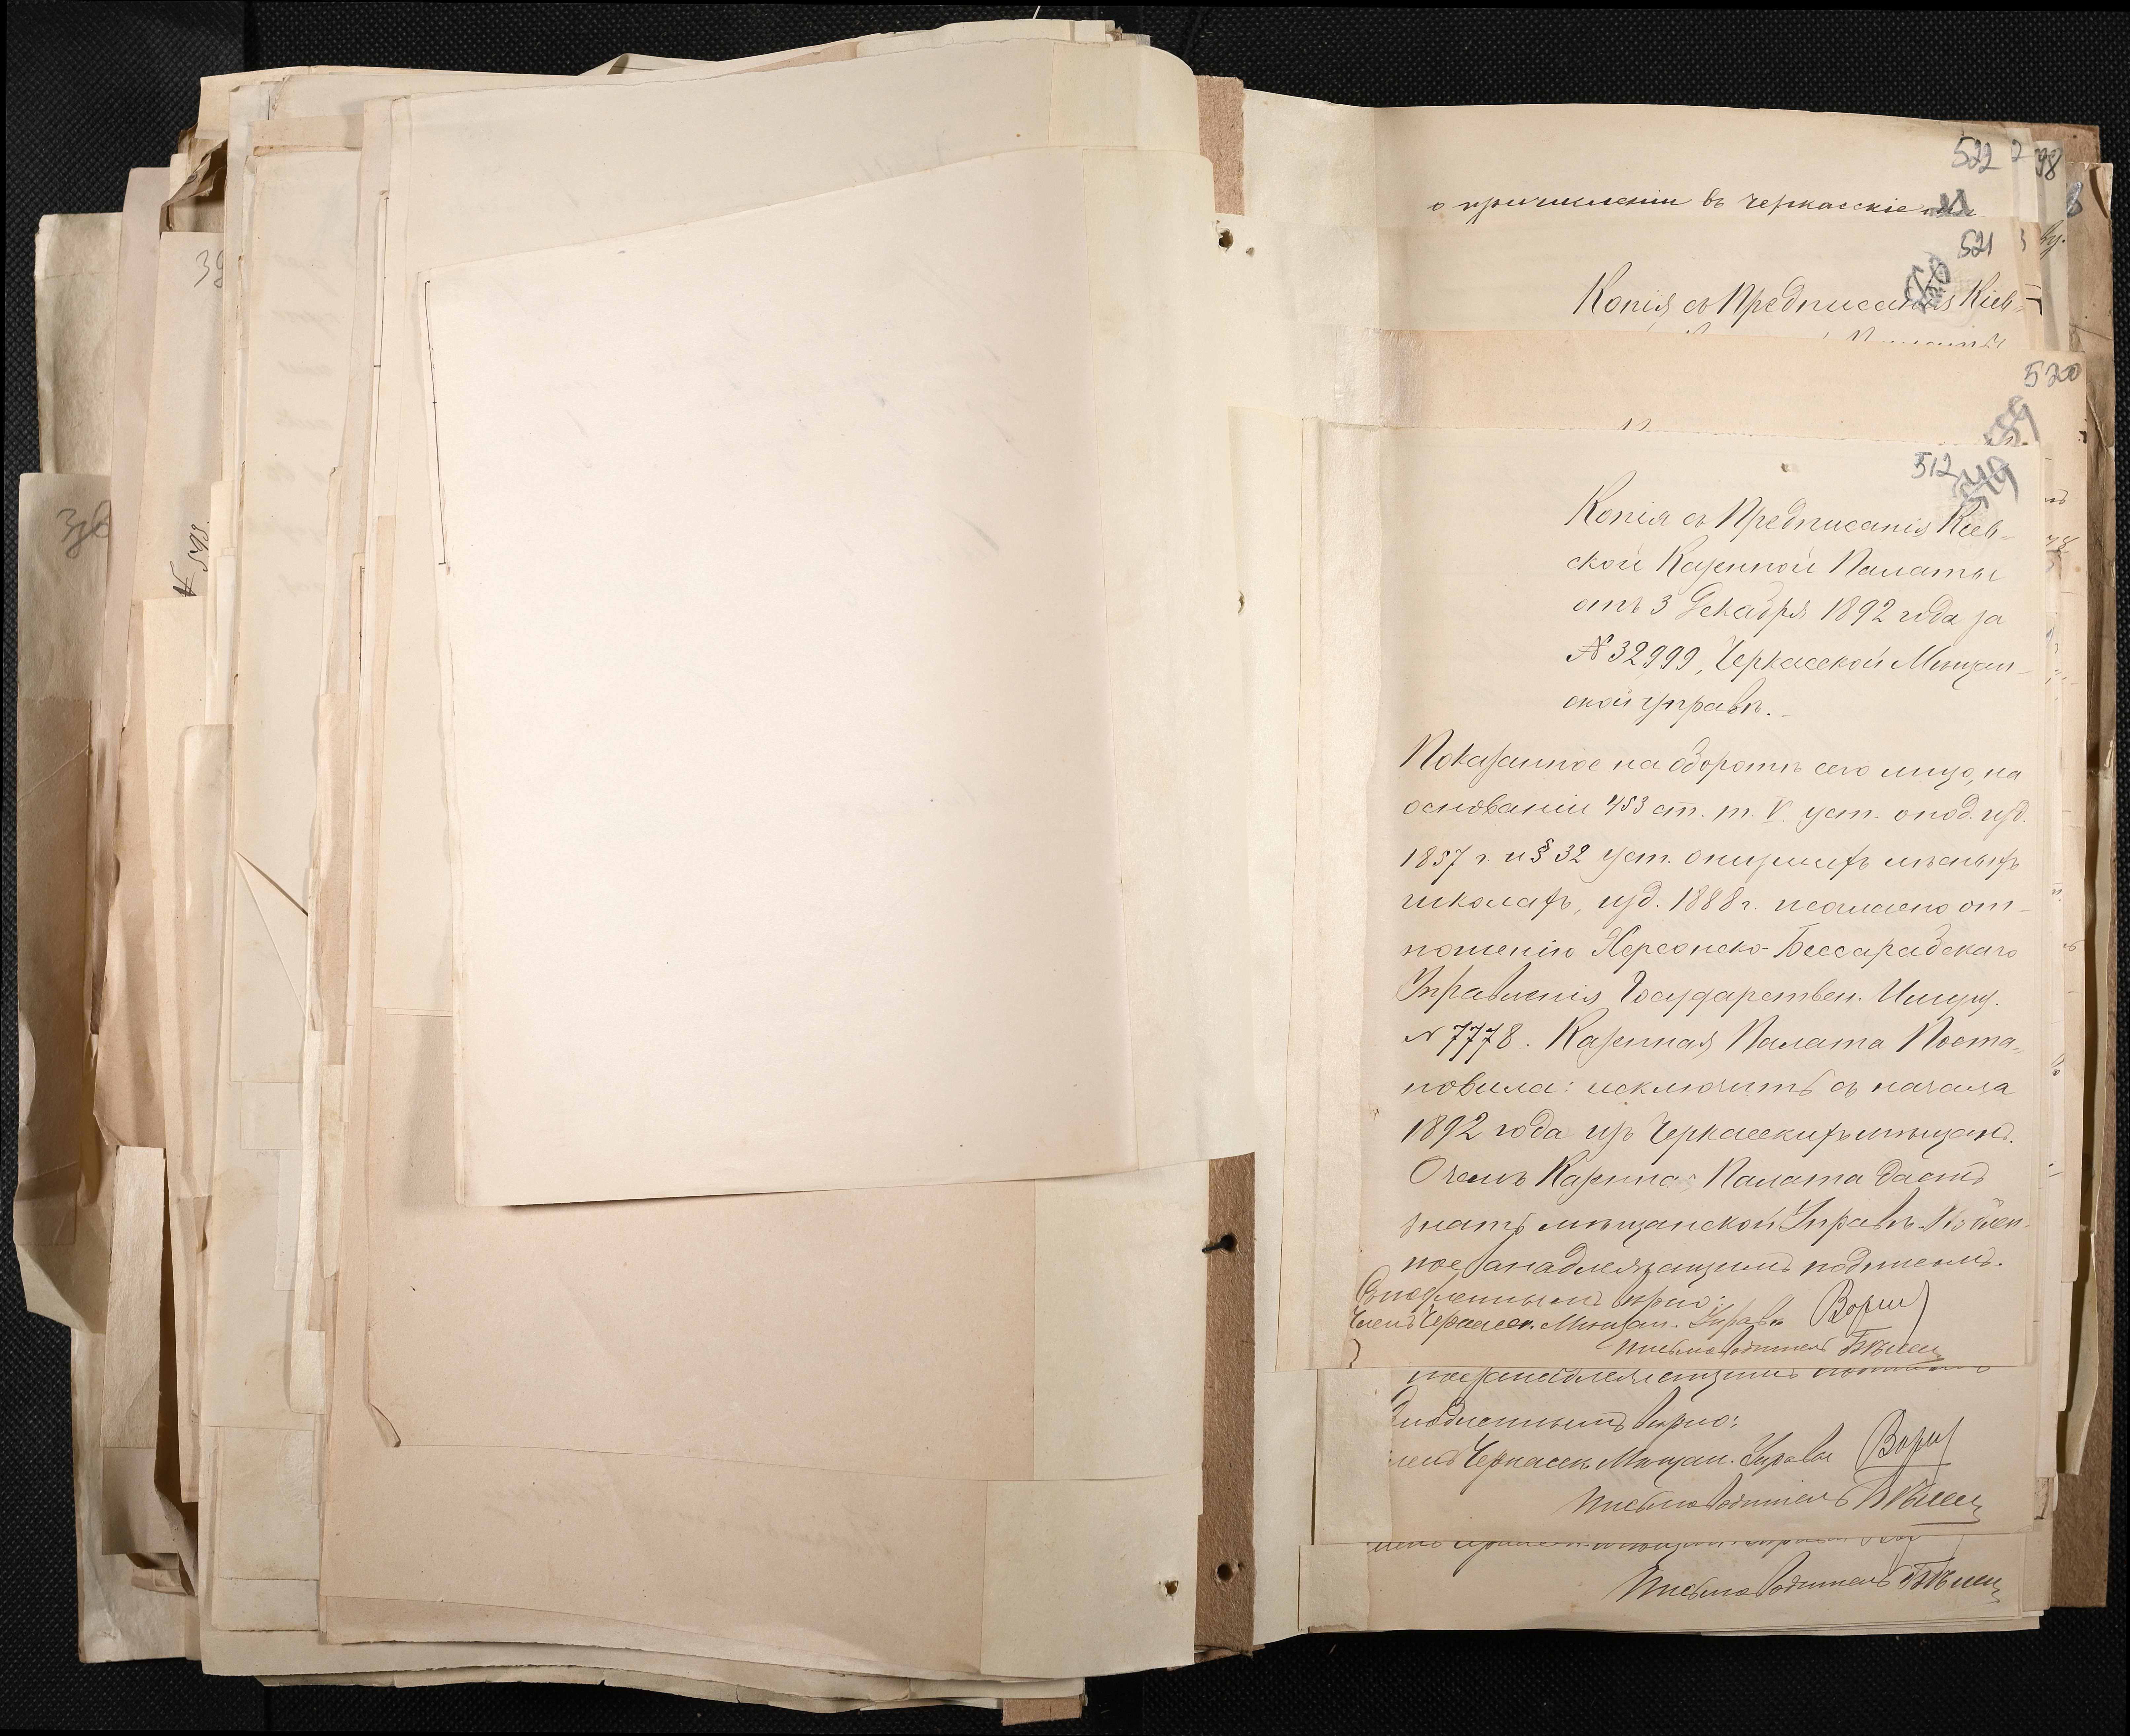 522
о причисленіи въ Черкасскіе
521
Копія съ Предписанія Кіев-
520
512
Копія съ Предписанія Кіев-
ской Казенной Палаты
отъ 3 Декабря 1892 года за
№ 32999, Черкасской Мѣщан-
ской управѣ.
Показанное на оборотѣ сего лицо, на
основаніи 453 ст. т. V. уст. о под. изд.
1857 г. и § 32 уст. о низшихъ лѣсныхъ
школахъ, изд. 1888 г. и согласно от-
ношенію Херсонско-Бессарабскаго
Управленія Государствен. Имущ.
№ 7778. Казенная Палата Поста-
новила: исключить съ начала
1892 года изъ Черкасскихъ мѣщанъ.
О чемъ Казенная Палата даетъ
знать мѣщанской Управѣ. Подлин-
ное за надлежащимъ подписомъ.
Съ подленнымъ вѣрно:
Членъ Черкасск. Мѣщан. Управы
Письмоводитель
ное за надлежащимъ подписомъ
подленнымъ вѣрно:
Черкасск. Мѣщан. Управы
Письмоводитель
Письмоводитель
№ 598